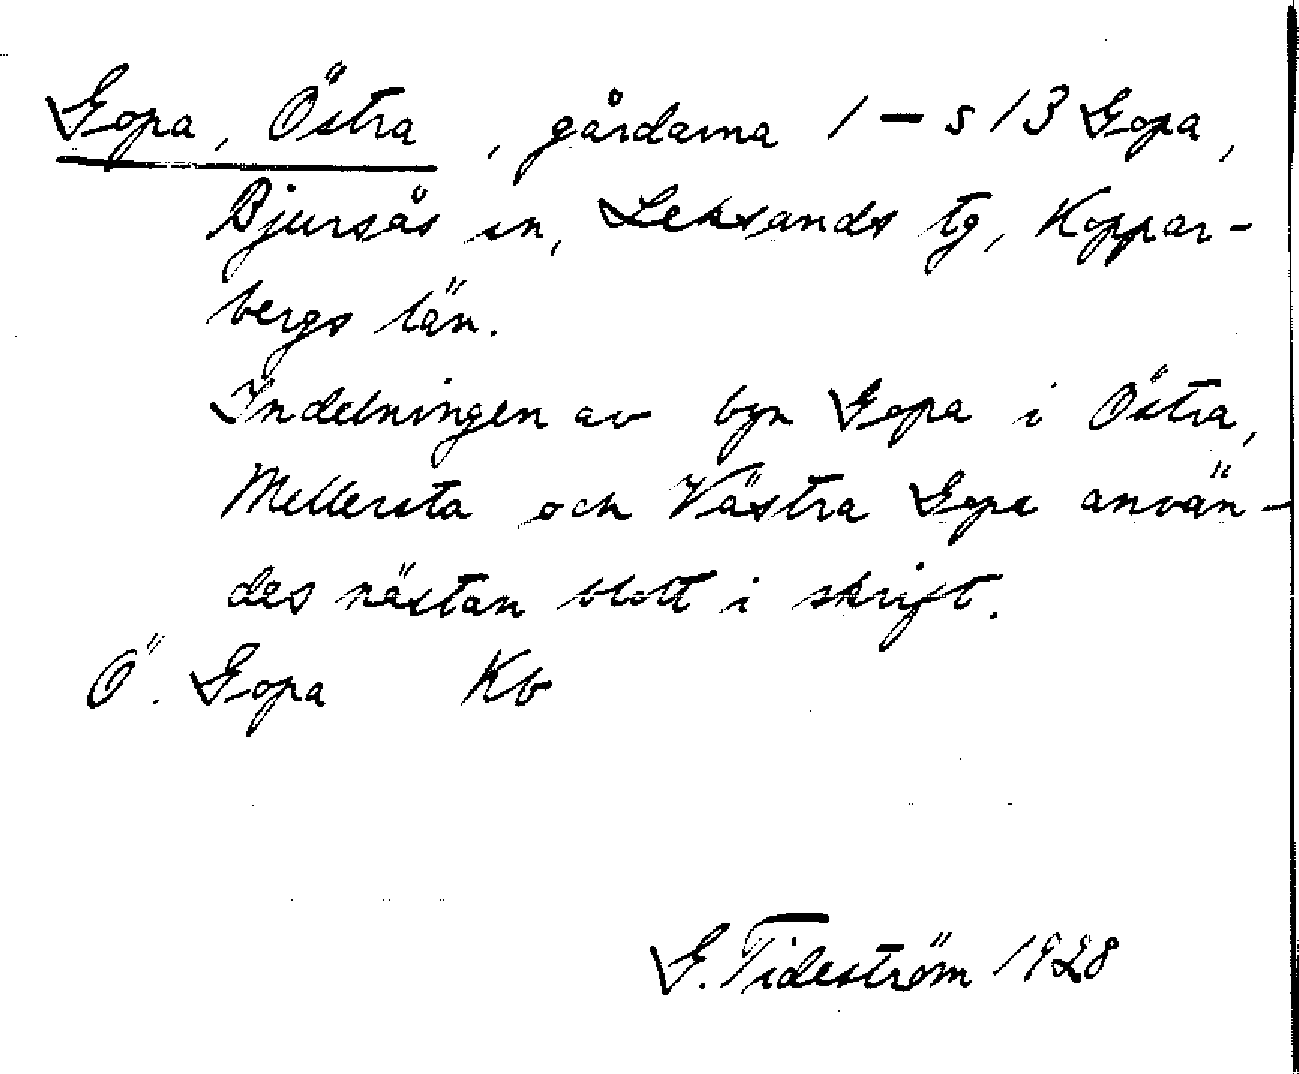 Gopa, Östra, gårdarna 1 – s 13 Gopa,
Bjursås sn, Leksands tg, Koppar-
bergs län.
Indelningen av byn Gopa i Östra,
Mellersta och Västra Gopa använ-
des nästan blott i skrift.
Ö. Gopa Kb
G. Tideström 1928